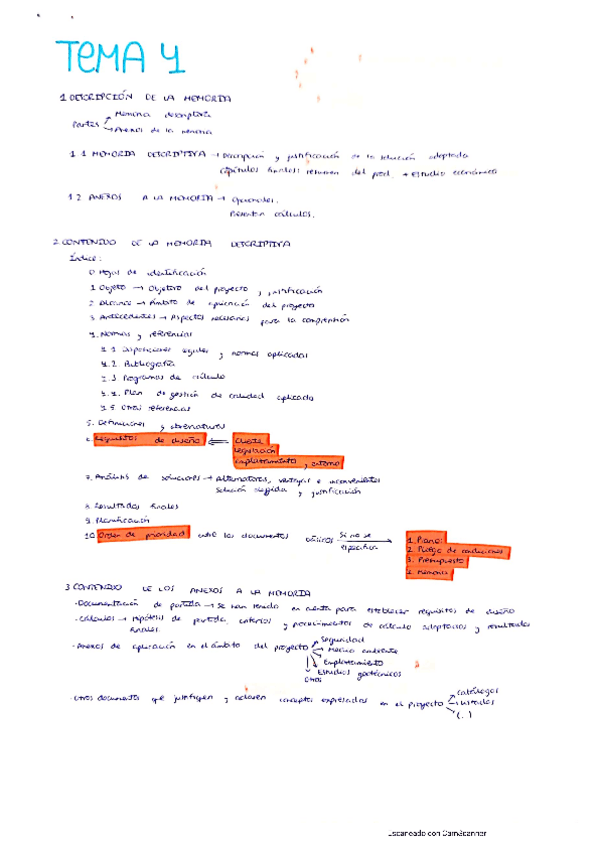 TEMA 4
1 DESCRIPCIÓN DE LA MEMORIA
Partes → Memoria descriptiva
→ Anexos de la memoria
1.1 MEMORIA DESCRIPTIVA → Descripción y justificación de la solución adoptada
capítulos finales: resumen del prod. + Estudio económico
1.2 ANEXOS A LA MEMORIA → Opcionales.
Presentan cálculos.
2 CONTENIDO DE LA MEMORIA DESCRIPTIVA
Índice:
0 Hojas de identificación
1 Objeto → Objetivo del proyecto y justificación
2 Alcance → Ámbito de aplicación del proyecto
3 Antecedentes → Aspectos necesarios para la comprensión
4. Normas y referencias
4.1 Disposiciones legales y normas aplicadas
4.2 Bibliografía
4.3 Programas de cálculo
4.4. Plan de gestión de calidad aplicado
4.5 Otras referencias
5. Definiciones y abreviaturas
6. Requisitos de diseño ⇐ Cliente
Legislación
Emplazamiento y entorno
7. Análisis de soluciones → Alternativas, ventajas e inconvenientes
Solución elegida y justificación
8. Resultados finales
9. Planificación
10. Orden de prioridad entre los documentos básicos Si no se especifica → 1. Planos
2. Pliego de condiciones
3. Presupuesto
4. Memoria
3 CONTENIDO DE LOS ANEXOS A LA MEMORIA
- Documentación de partida → Se han tenido en cuenta para establecer requisitos de diseño
- Cálculos → Hipótesis de partida, criterios y procedimientos de cálculo adoptados y resultados
finales.
- Anexos de aplicación en el ámbito del proyecto → Seguridad
→ Medio ambiente
Emplazamiento
Estudios geotécnicos
Otros
- Otros documentos que justifiquen y aclaren conceptos expresados en el proyecto → catálogos
listados
(...)
Escaneado con CamScanner